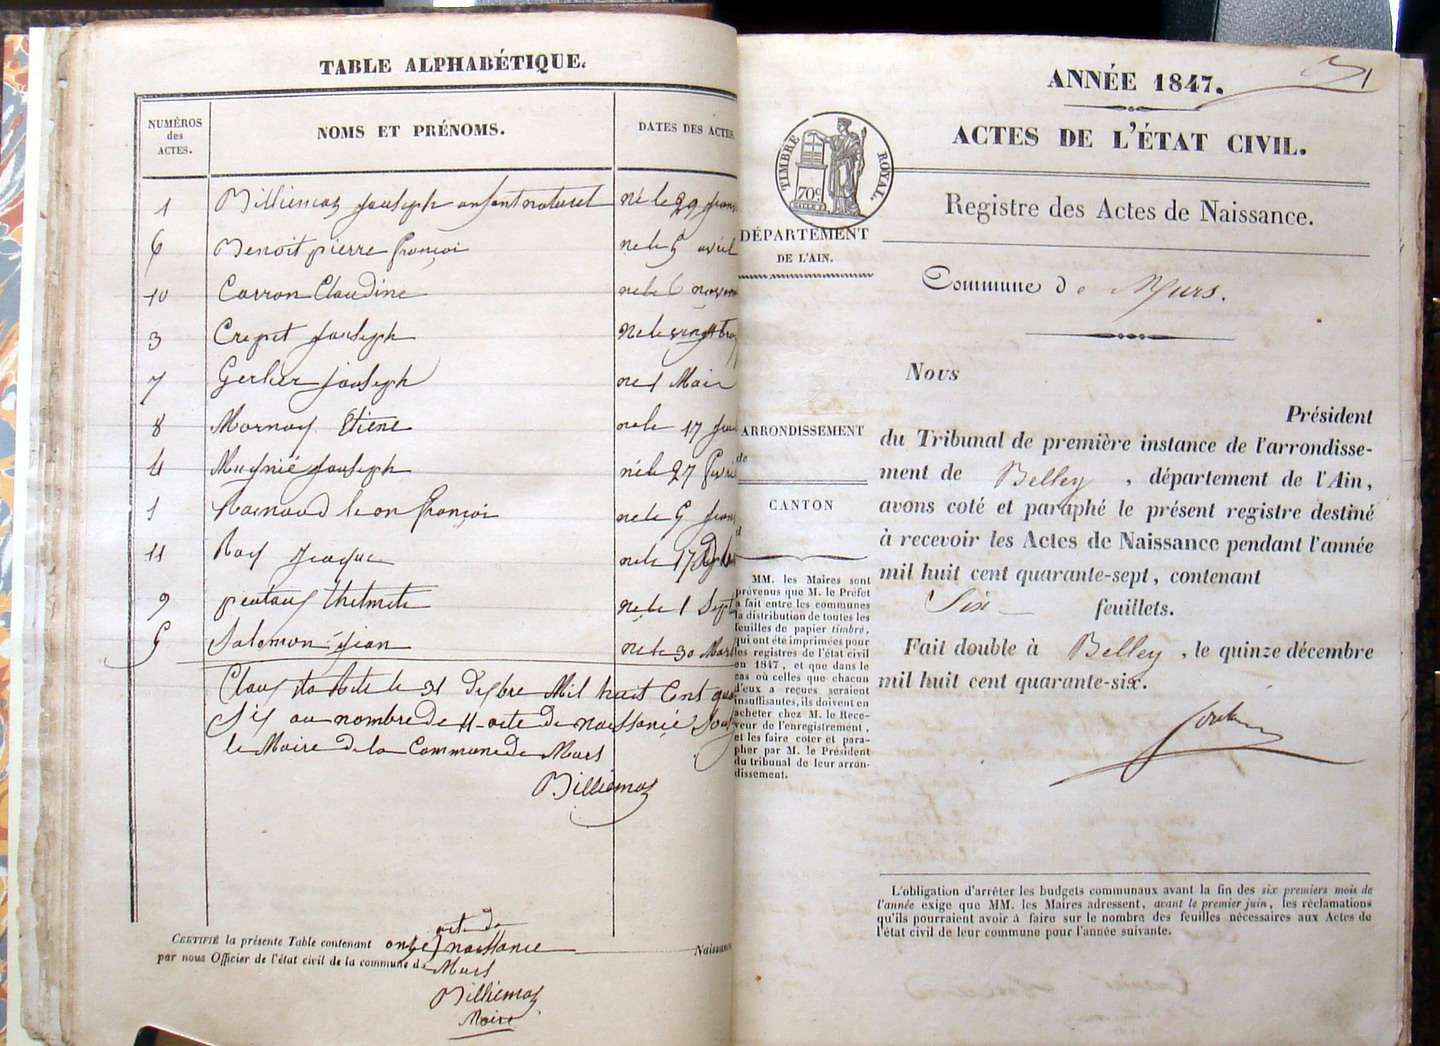 TABLE ALPHABÉTIQUE.
NUMÉROS
des
ACTES.
NOMS ET PRÉNOMS.
DATES DES ACTES.
1 Billiemaz Jouseph anfant naturel né le 29
6 Benoit pierre françoi ne le 5 avril
10 Carron Claudine ne le 6
3 Crepet Jouseph ne le
7 Gerlier Jouseph ne 1 Mai
8 Mornay Etiene ne le 17
4 Mugnié Jouseph né le 27
1 Raenaud leon françoi ne le
11 Roy Jraque ne le 17
9 ne le 1 Sept
5 Salomon Jean ne le 30 Mars
Claus la liste le 31 Mil huit Cent
Six au nombre de 11 acte de naissance
le Maire de la Commune de Murs
Billiemaz
acte de
CERTIFIÉ la présente Table contenant onze naissance Naissance
par nous Officier de l'état civil de la commune de Murs
Billiemaz
Maire
ANNÉE 1847.
1
ACTES DE L'ÉTAT CIVIL.
TIMBRE ROYAL.
70c
Registre des Actes de Naissance.
DÉPARTEMENT
DE L'AIN.
Commune de Murs.
ARRONDISSEMENT
de
CANTON
d
MM. les Maires sont
prévenus que M. le Préfet
a fait entre les communes
la distribution de toutes les
feuilles de papier timbré,
qui ont été imprimées pour
les registres de l'état civil
en 1847, et que dans le
cas où celles que chacun
d'eux a reçues seraient
insuffisantes, ils doivent en
acheter chez M. le Rece-
veur de l'enregistrement,
et les faire coter et para-
pher par M. le Président
du tribunal de leur arron-
dissement.
Nous
Président
du Tribunal de première instance de l'arrondisse-
ment de Belley, département de l'Ain,
avons coté et paraphé le présent registre destiné
à recevoir les Actes de Naissance pendant l'année
mil huit cent quarante-sept, contenant
Six feuillets.
Fait double à Belley, le quinze décembre
mil huit cent quarante-six.
L'obligation d'arrêter les budgets communaux avant la fin des six premiers mois de
l'année exige que MM. les Maires adressent, avant le premier juin, les réclamations
qu'ils pourraient avoir à faire sur le nombre des feuilles nécessaires aux Actes de
l'état civil de leur commune pour l'année suivante.